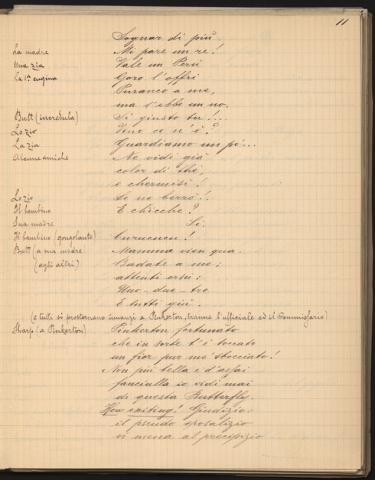 11
Sognar di più.
La madre Mi pare un re!
Una zia Vale un Perù
La 1ª cugina Goro l'offrì
Puranco a me,
ma s'ebbe un no.
Butt (incredula) Si giusto tu!...
Lo zio Vino ce n'è?
La zia Guardiamo un po'...
Alcune amiche Ne vidi già
color di thè,
e chermisì!
Lo zio Se ne berrò!
Il bambino E chicche?
Sua madre Sì.
Il bambino (gongolante) Curucucu!
Butt (a sua madre) Mamma vien qua.
(agli altri) Badate a me:
attenti orsù:
Uno - due - tre
E tutti giù.
(e tutti si prosternano innanzi a Pinkerton, tranne l'ufficiale ed il Commissario)
Sharp (a Pinkerton) Pinkerton fortunato
che in sorte t'è toccato
un fior pur mo' sbocciato!
Non più bella e d'assai
fanciulla io vidi mai
di questa Butterfly.
Giudizio:
il pseudo sposalizio
vi mena al precipizio